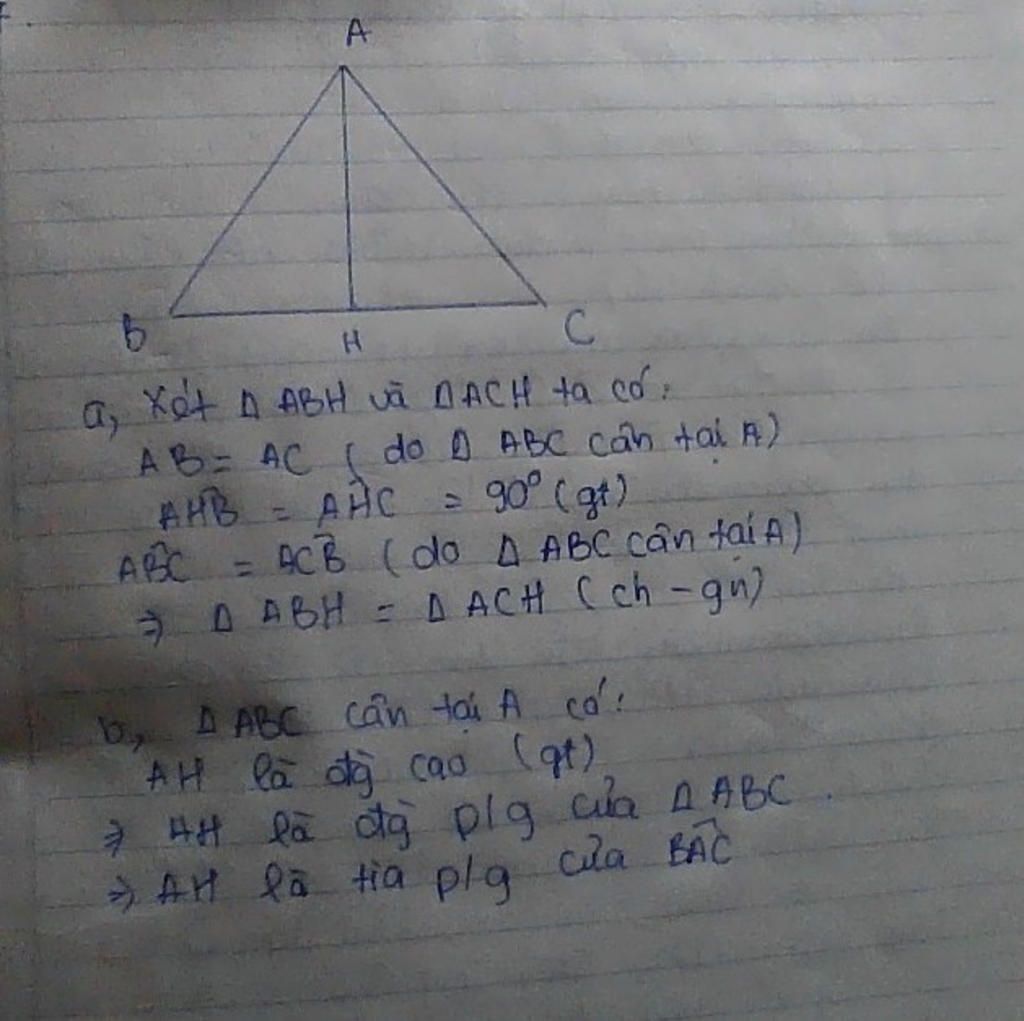 A
B
H
C
a, Xét Δ ABH và Δ ACH ta có:
AB = AC ( do Δ ABC cân tại A)
AĤB = AĤC = 90° (gt)
AB̂C = AĈB ( do Δ ABC cân tại A)
⇒ Δ ABH = Δ ACH ( ch - gn)
b, Δ ABC cân tại A có:
AH là đg cao (gt)
⇒ AH là đg p/g của Δ ABC.
⇒ AH là tia p/g của BÂC